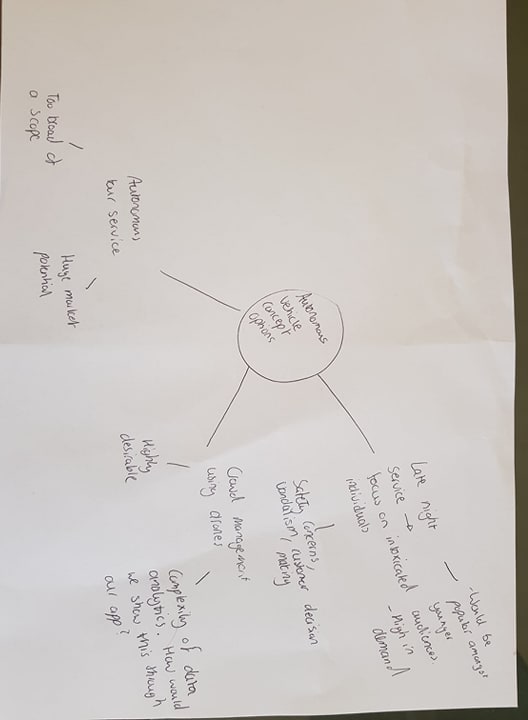 Autonomous
vehicle
concept
options
Late night
service →
focus on intoxicated
individuals
- Would be
popular amongst
younger
audiences.
- High in
demand
Safety concerns,
vandalism, customer decision
making
Crowd management
using drones
Highly
desirable
Complexity of data
analytics. How would
we show this through
our app?
Autonomous
tour service
Too broad of
a scope
Huge market
potential